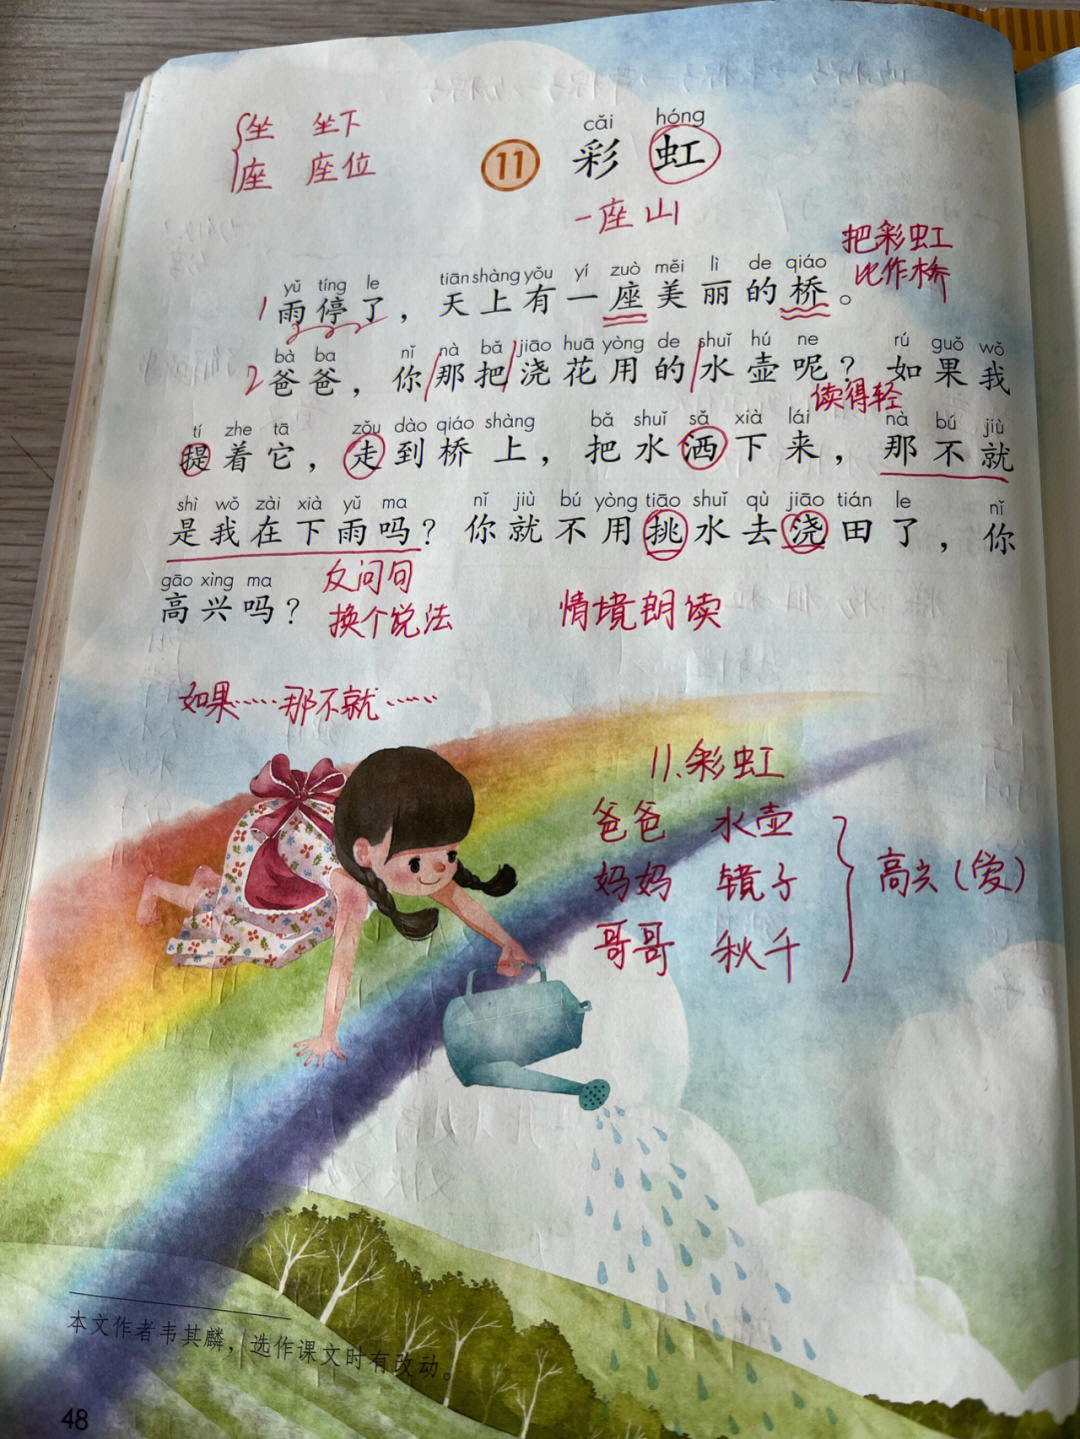 坐 坐下
座 座位
cǎi hóng
11 彩虹
一座山
把彩虹
比作桥
yǔ tíng le tiān shàng yǒu yí zuò měi lì de qiáo
1 雨停了，天上有一座美丽的桥。
bà ba nǐ nà bǎ jiāo huā yòng de shuǐ hú ne rú guǒ wǒ
2 爸爸，你那把浇花用的水壶呢？如果我
读得轻
tí zhe tā zǒu dào qiáo shàng bǎ shuǐ sǎ xià lái nà bú jiù
提着它，走到桥上，把水洒下来，那不就
shì wǒ zài xià yǔ ma nǐ jiù bú yòng tiāo shuǐ qù jiāo tián le nǐ
是我在下雨吗？你就不用挑水去浇田了，你
gāo xìng ma
高兴吗？
反问句
换个说法
情境朗读
如果……那不就……
11.彩虹
爸爸 水壶
妈妈 镜子
哥哥 秋千
高兴（爱）
本文作者韦其麟，选作课文时有改动。
48